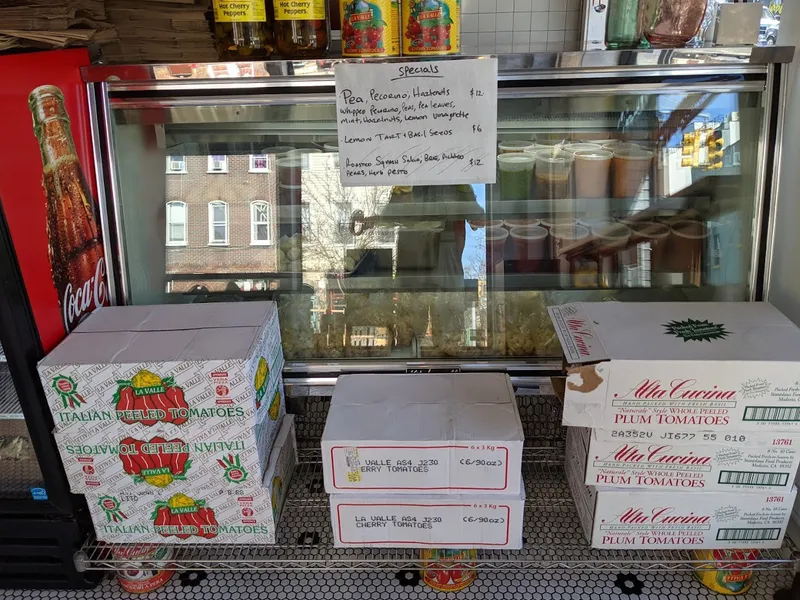 Hot Cherry
Peppers
Hot Cherry
Peppers
LA VALLE
LA VALLE
SPECIALS
Pea, Pecorino, Hazelnuts $12
Whipped Pecorino, Peas, Pea leaves,
mint, Hazelnuts, Lemon Vinaigrette
Lemon Tart + Basil Seeds $6
Roasted Squash Salad, Beer Pickled $12
Pears, Herb Pesto
Coca-C
LA VALLE
ITALIAN PEELED TOMATOES
LA VALLE
LA VALLE
ITALIAN PEELED TOMATOES
6 x 3 Kg
LA VALLE AS4 J230 (6/90oz)
ERRY TOMATOES
6 x 3 Kg
LA VALLE AS4 J230 (6/90oz)
CHERRY TOMATOES
Alta Cucina
Alta Cucina
HAND PACKED WITH FRESH BASIL
"Naturale" Style WHOLE PEELED
PLUM TOMATOES
2A352V JI677 55 010
13761
Alta Cucina
"Naturale" Style WHOLE PEELED
PLUM TOMATOES
13761
Alta Cucina
"Naturale" Style WHOLE PEELED
PLUM TOMATOES